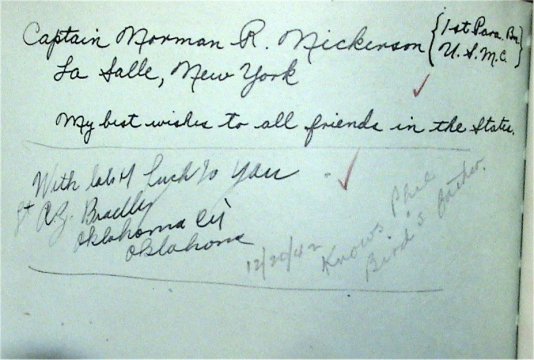 Captain Norman R. Nickerson {1st Para. Bn.
U.S.M.C.}
La Salle, New York
My best wishes to all friends in the States.
With lots of Luck to You
Lt. Bradley
Oklahoma City
Oklahoma
12/20/42
Knows Phil
Bird's brother.